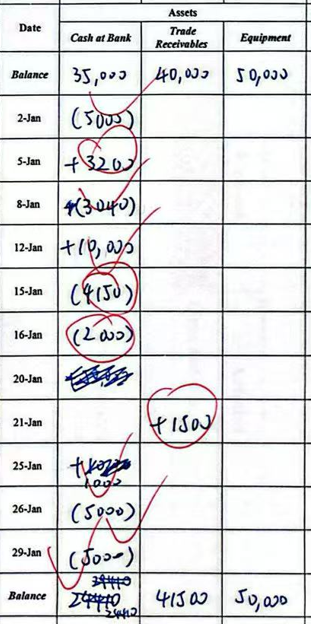 Assets
Date Cash at Bank Trade Receivables Equipment
Balance 35,000 40,000 50,000
2-Jan (5000)
5-Jan +3200
8-Jan (3040)
12-Jan +10,000
15-Jan (4150)
16-Jan (2000)
20-Jan
21-Jan +1500
25-Jan +
1000
26-Jan (5000)
29-Jan (5000)
24410
Balance 24410 41500 50,000
24410